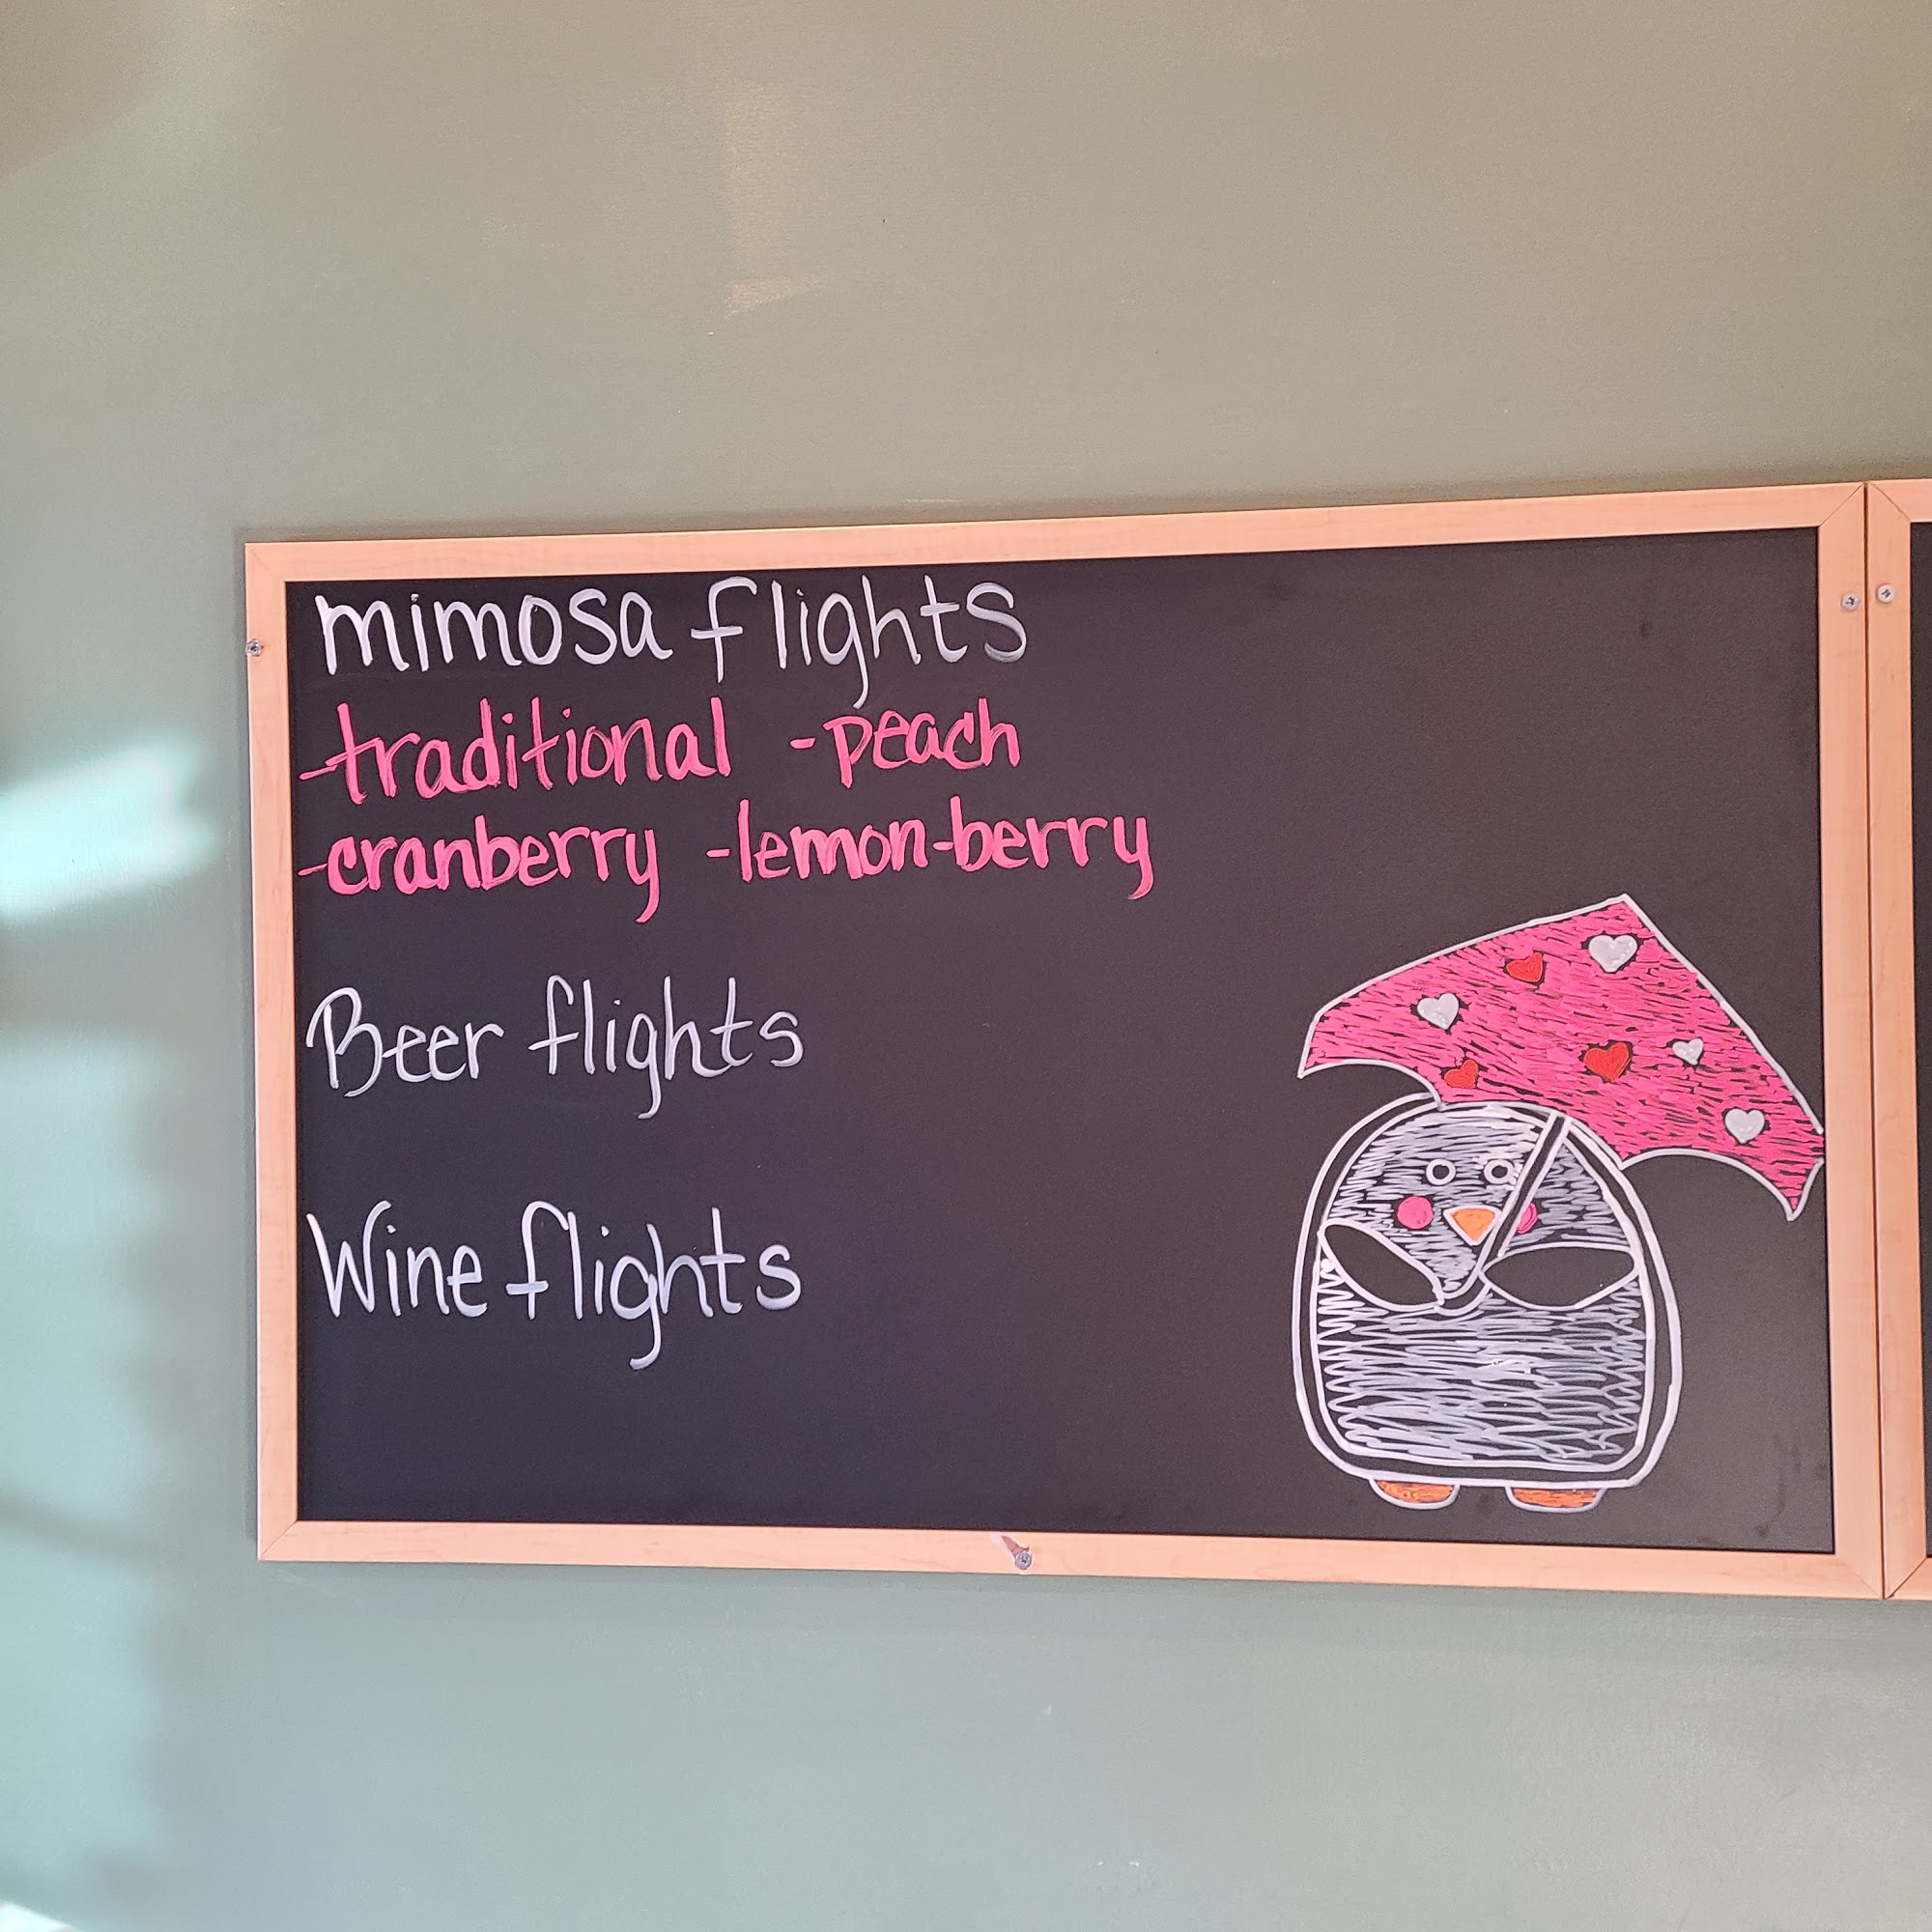 mimosa flights
-traditional -peach
-cranberry -lemon-berry
Beer flights
Wine flights